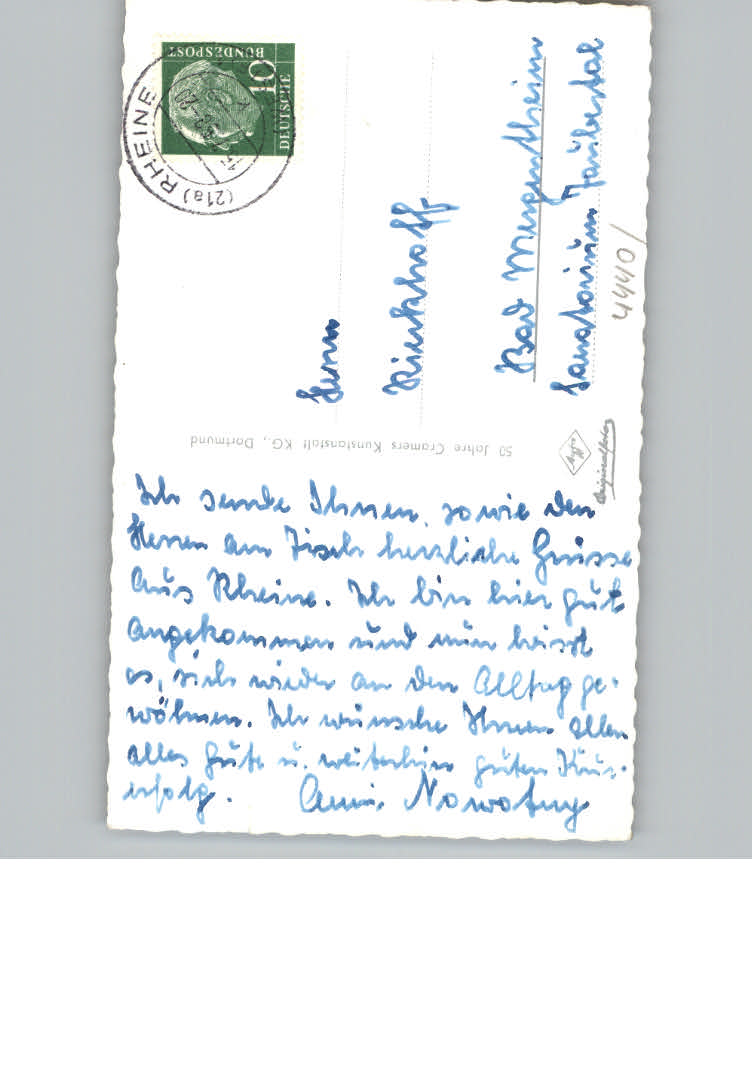 Ich sende Ihnen, sowie den
Herren am Tisch herzliche Grüsse
aus Rheine. Ich bin hier gut
angekommen und nun heisst
es, sich wieder an den Alltag ge-
wöhnen. Ich wünsche Ihnen allen
alles Gute u. weiterhin guten Kur-
erfolg. Nowotny
50 Jahre Cramers Kunstanstalt KG., Dortmund
Agfa
Originalfoto
Herrn
Kierkhoff
Bad Mergentheim
Sanatorium Taubertal
4440/
DEUTSCHE
BUNDESPOST
10
(21a) RHEINE